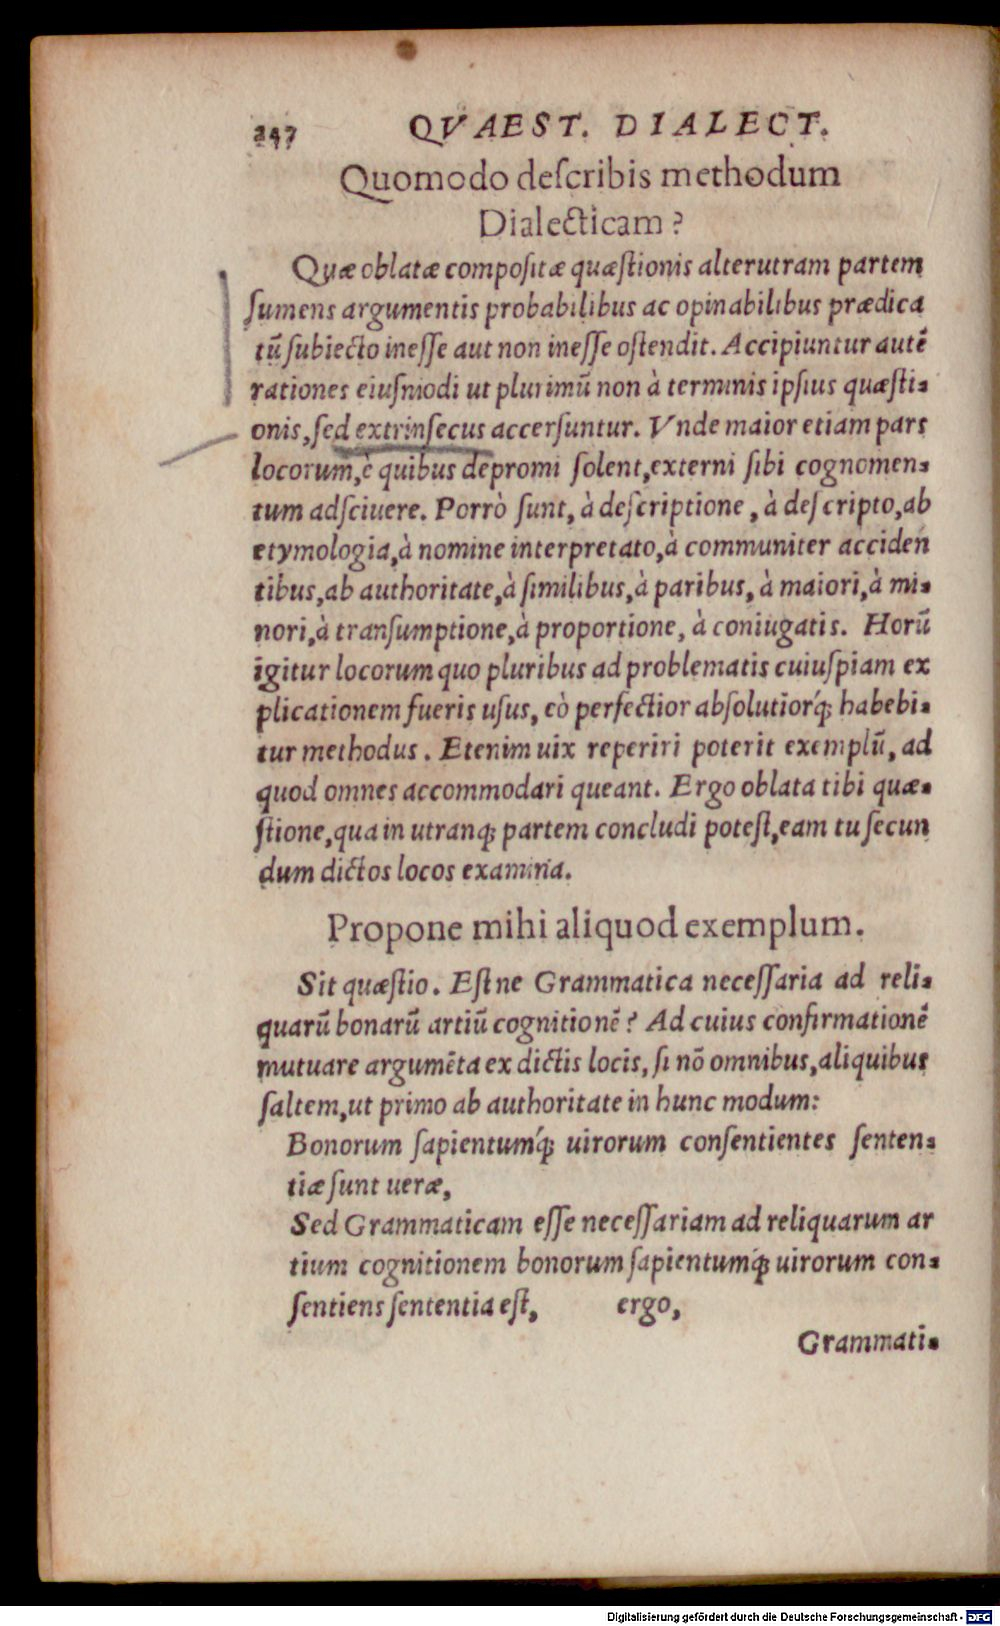 247 QVAEST. DIALECT.
Quomodo deſcribis methodum
Dialecticam?
Quæ oblatæ compoſitæ quæſtionis alterutram partem
ſumens argumentis probabilibus ac opinabilibus prædica
tū ſubiecto ineſſe aut non ineſſe oſtendit. Accipiuntur autē
rationes eiuſmodi ut plurimū non à terminis ipſius quæſti-
onis, ſed extrinſecus accerſuntur. Vnde maior etiam pars
locorum, è quibus depromi ſolent, externi ſibi cognomen-
tum adſciuere. Porrò ſunt, à deſcriptione, à deſcripto, ab
etymologia, à nomine interpretato, à communiter acciden
tibus, ab authoritate, à ſimilibus, à paribus, à maiori, à mi-
nori, à tranſumptione, à proportione, à coniugatis. Horū
igitur locorum quo pluribus ad problematis cuiuſpiam ex
plicationem fueris uſus, eò perfectior abſolutiorq́; habebi-
tur methodus. Etenim uix reperiri poterit exemplū, ad
quod omnes accommodari queant. Ergo oblata tibi quæ-
ſtione, qua in utranq; partem concludi poteſt, eam tu ſecun
dum dictos locos examina.
Propone mihi aliquod exemplum.
Sit quæſtio. Eſtne Grammatica neceſſaria ad reli-
quarū bonarū artiū cognitionē? Ad cuius confirmationē
mutuare argumēta ex dictis locis, ſi nō omnibus, aliquibus
ſaltem, ut primo ab authoritate in hunc modum:
Bonorum ſapientumq́; uirorum conſentientes ſenten-
tiæ ſunt ueræ,
Sed Grammaticam eſſe neceſſariam ad reliquarum ar
tium cognitionem bonorum ſapientumq́; uirorum con-
ſentiens ſententia eſt, ergo,
Grammati-
Digitalisierung gefördert durch die Deutsche Forschungsgemeinschaft - DFG